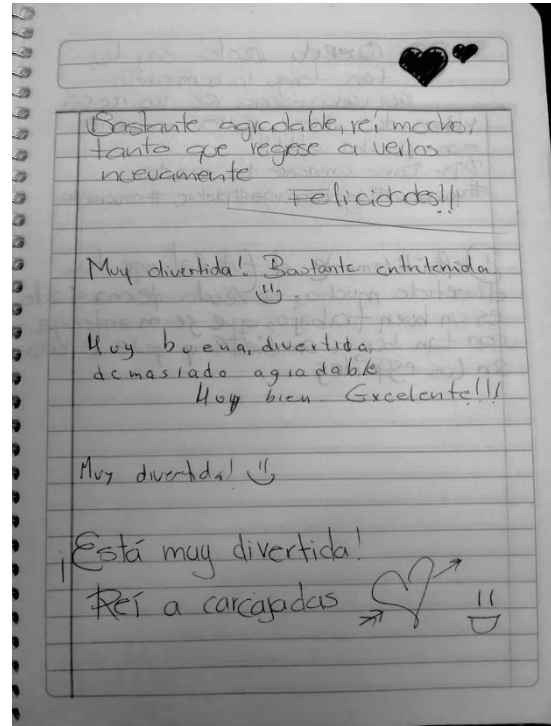 Bastante agradable, reí mucho,
tanto que regrese a verlos
nuevamente
Felicidades!!
Muy divertida! Bastante entretenida
Muy buena, divertida,
demasiado agradable
Muy bien Excelente!!!
Muy divertida!
¡Está muy divertida!
Reí a carcajadas